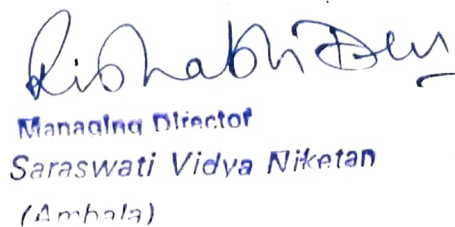 Rishabh Dev
Managing Director
Saraswati Vidya Niketan
(Ambala)